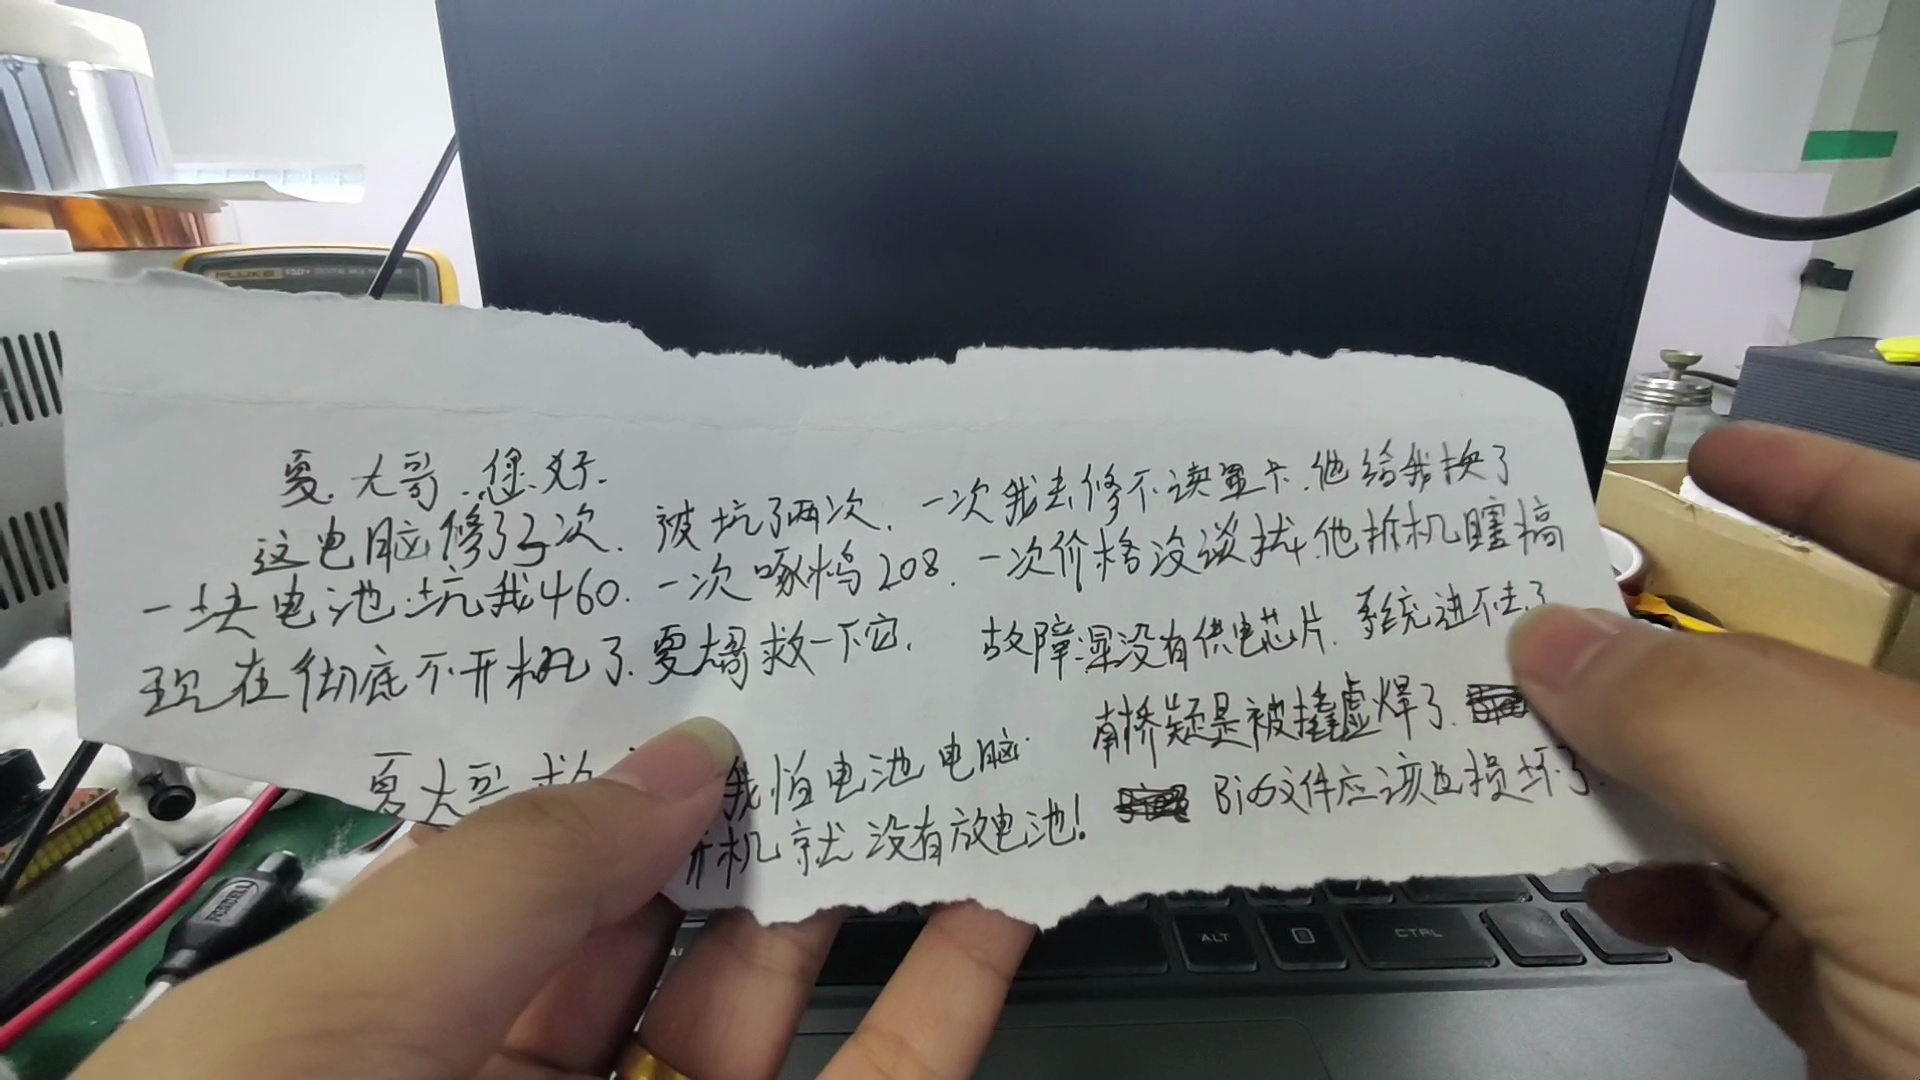 夏大哥.您好.
这电脑修了3次. 被坑了两次. 一次我去修不读显卡.他给我换了
一块电池.坑我460. 一次啄木鸟208. 一次价格没谈拢.他拆机瞎搞
现在彻底不开机了.夏大哥救一下它.
故障:显没有供电芯片. 系统进不去了
南桥疑是被撞虚焊了.
Bios文件应该也损坏了.
夏大哥 我怕电池电脑
开机就没有放电池!
FLUKE
ALT
CTRL